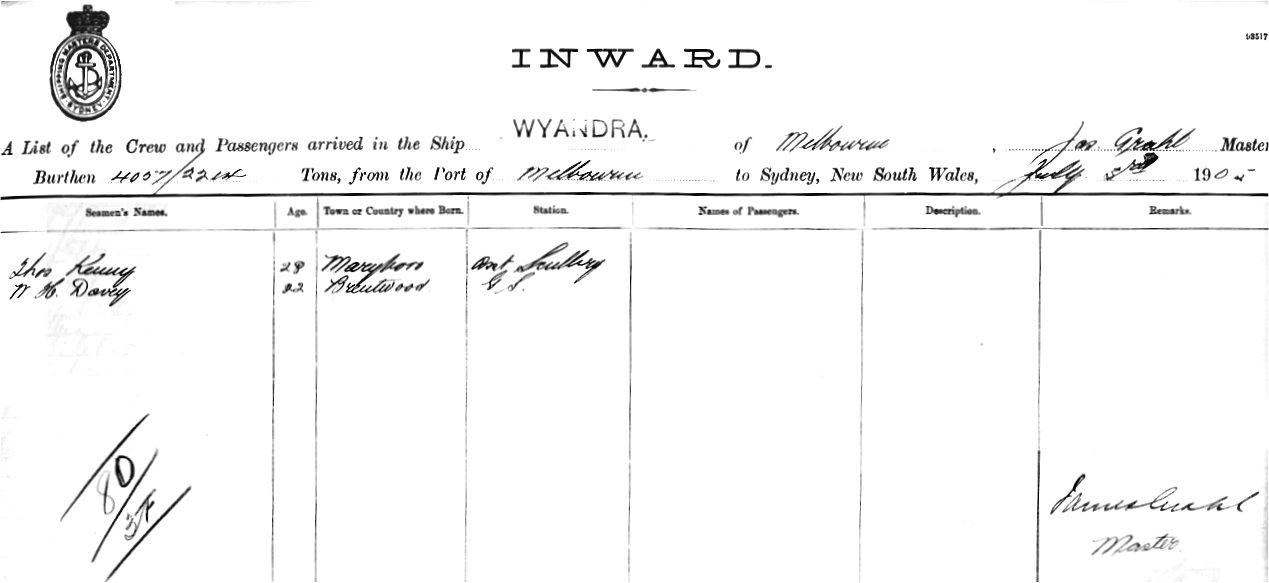 SHIPPING MASTERS DEPARTMENT SYDNEY
93517
INWARD.
A List of the Crew and Passengers arrived in the Ship WYANDRA. of Melbourne, Jas. Grahl Master
Burthen 4057/ Tons, from the Port of Melbourne to Sydney, New South Wales, July 3rd 1905
Seamen's Names. Age. Town or Country where Born. Station. Names of Passengers. Description. Remarks.
Thos Kenny 28 Maryboro Asst Scullery
W H. Davey 22 Brentwood G S.
80
34
James Grahl
Master